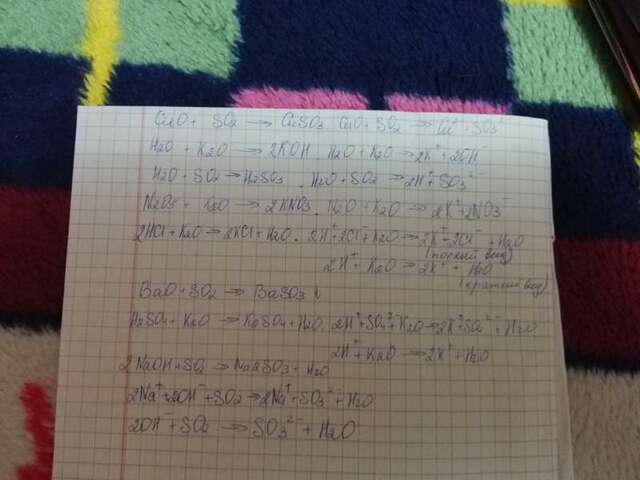 CuO + SO2 → CuSO3 CuO + SO2 → Cu + SO3
H2O + K2O → 2KOH. H2O + K2O → 2K⁺ + 2OH⁻
H2O + SO2 → H2SO3. H2O + SO2 → 2H⁺ + SO3²⁻
N2O5 + K2O → 2KNO3. K2O → 2K⁺ + 2NO3⁻
2HCl + K2O → 2KCl + H2O. 2H⁺ + 2Cl⁻ + K2O → 2K⁺ + 2Cl⁻ + H2O
(полный вид)
2H⁺ + K2O → 2K⁺ + H2O
(краткий вид)
BaO + SO2 → BaSO3
H2SO4 + K2O → K2SO4 + H2O. 2H⁺ + SO4²⁻ + K2O → 2K⁺ + SO4²⁻ + H2O
2H⁺ + K2O → 2K⁺ + H2O
2NaOH + SO2 → Na2SO3 + H2O
2Na⁺ + 2OH⁻ + SO2 → 2Na⁺ + SO3²⁻ + H2O
2OH⁻ + SO2 → SO3²⁻ + H2O